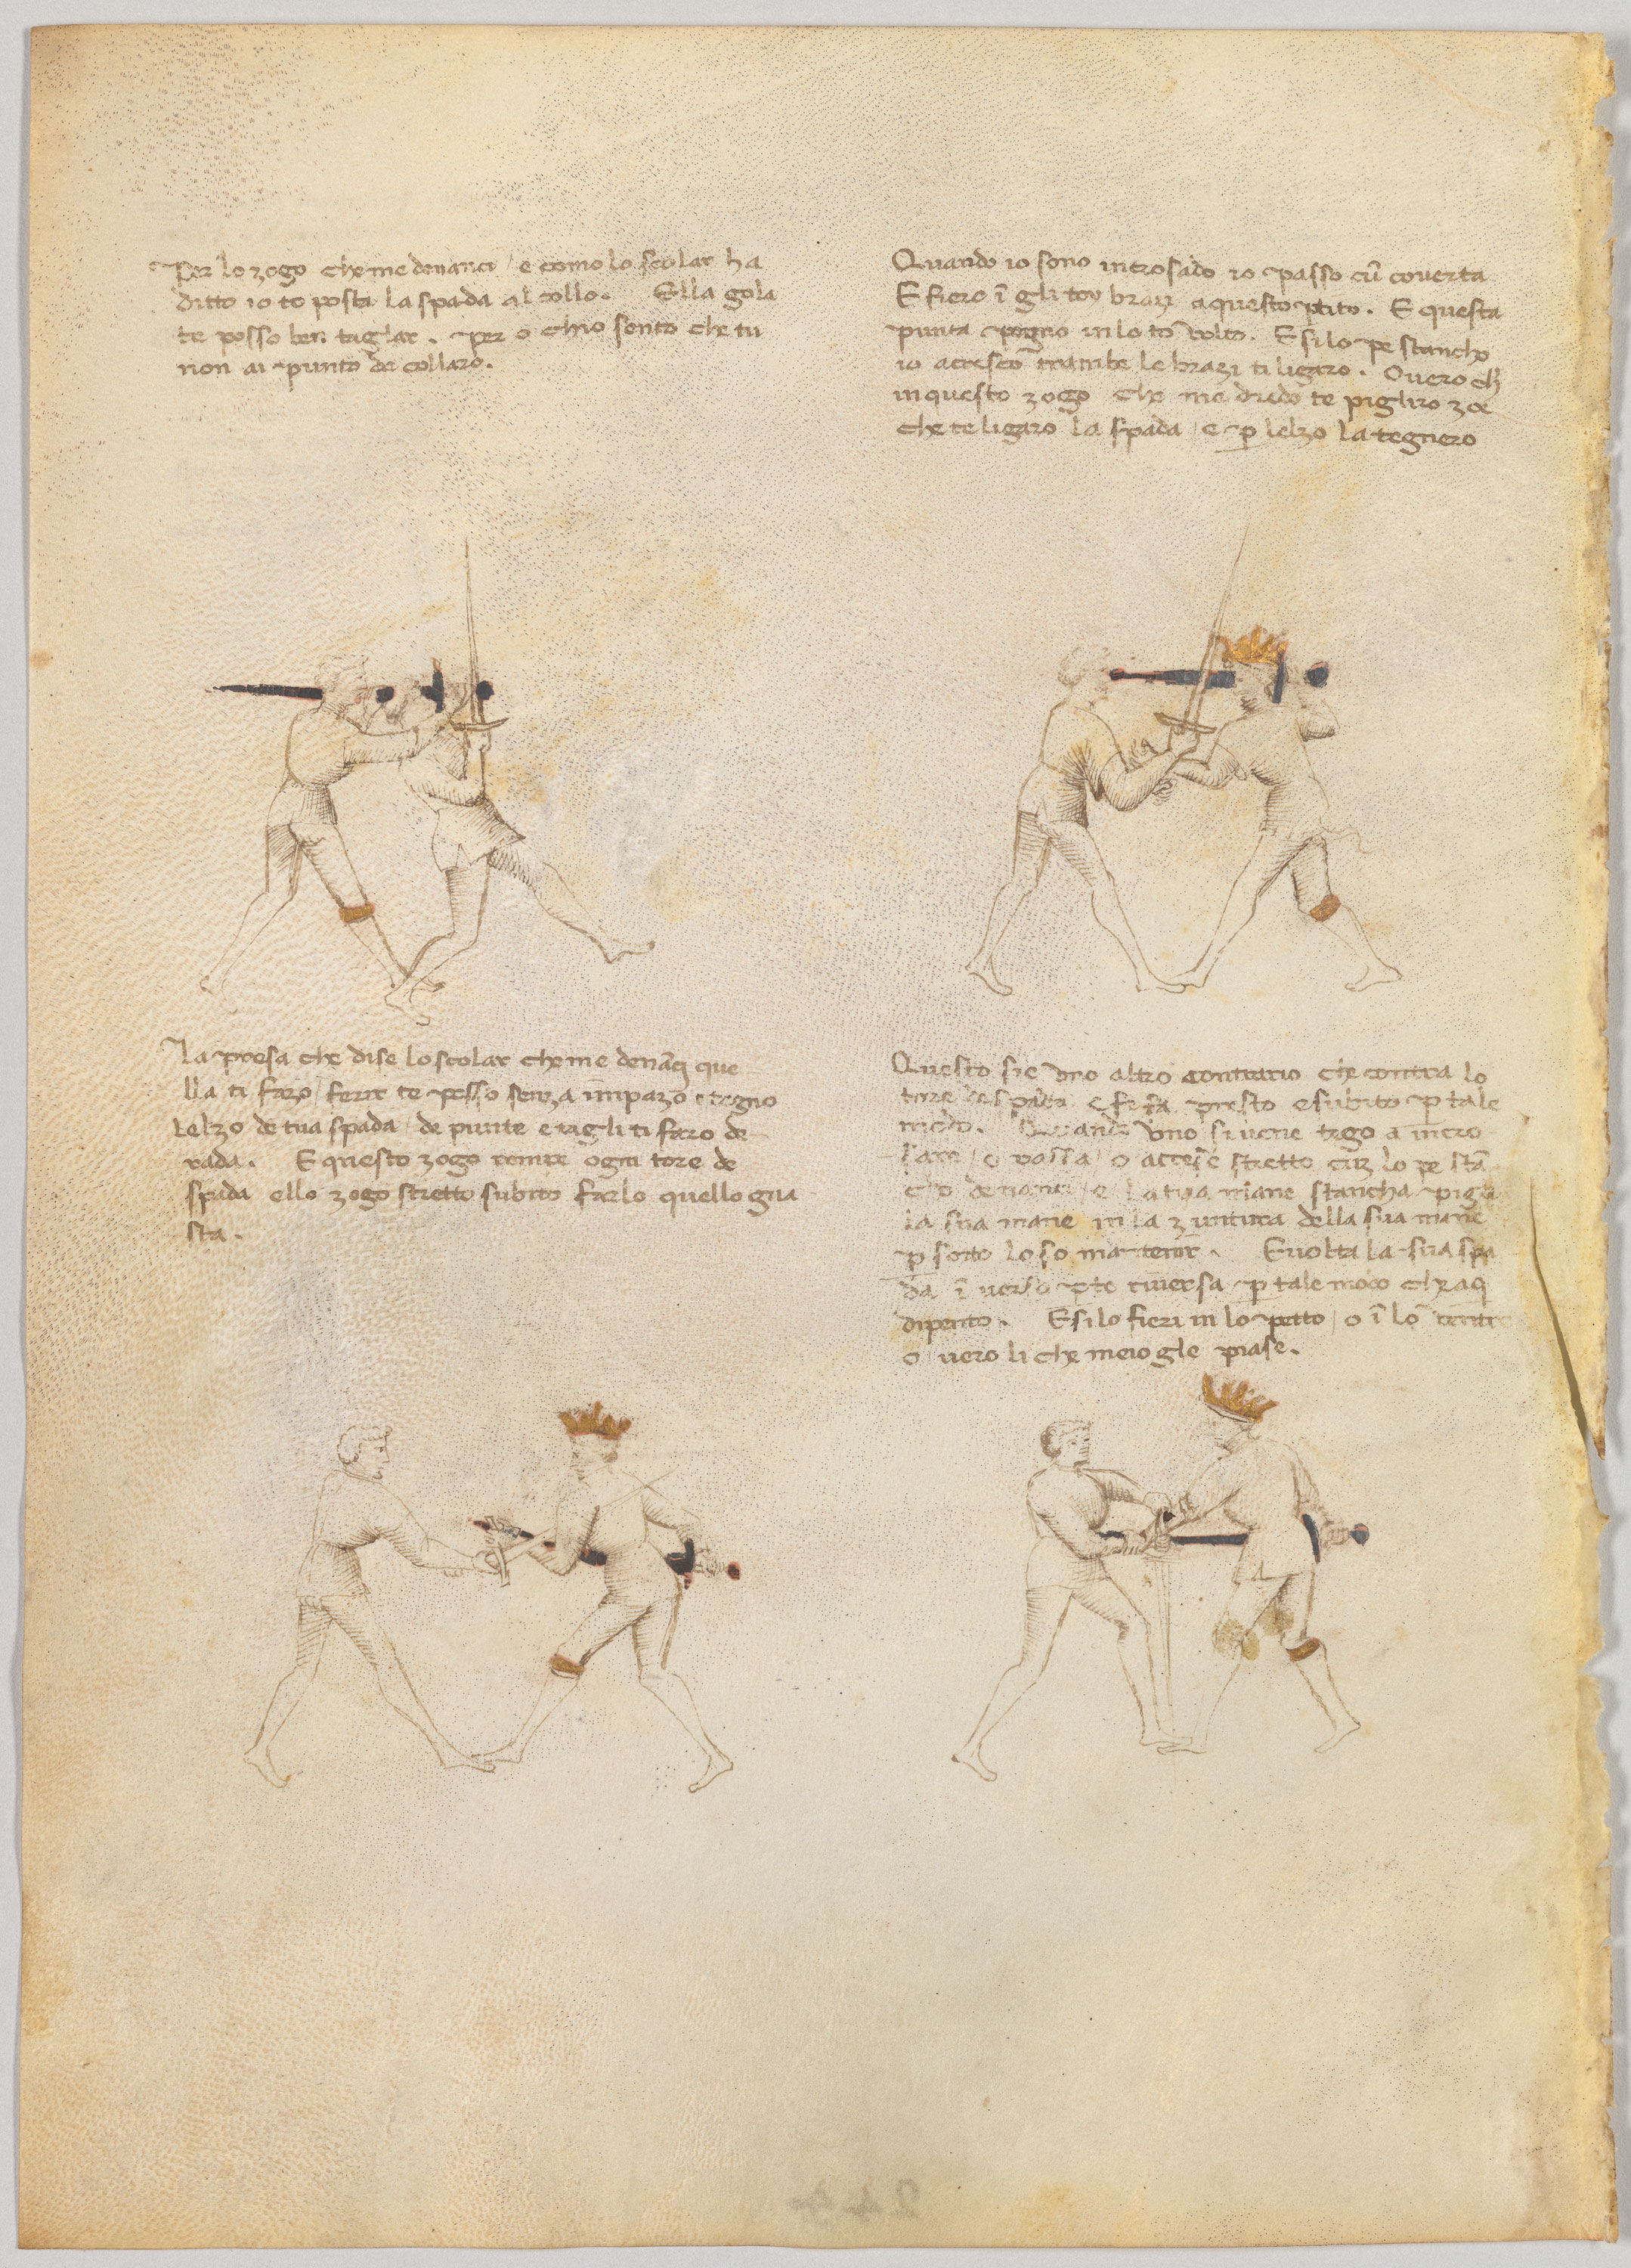 Per lo zogo che me denanci / e como lo scolar ha
ditto io te posta la spada al collo. Ella gola
te posso ben taglar. per o chio sento che tu
non ai punto de collaro.
Quando io sono incrosado io passo cū coverta
E fiero ī gli toy brazi a questo ptito. E questa
punta pogno in lo to volto. E si lo pe stancho
io acresco trambe le brazi ti ligaro. Overo ch̄
in questo zogo che me dredo te pigliro zoe
che te ligaro la spada / e p̱ lelzo la tegnero
La presa che dise lo scolar che me denāci que
lla ti farò / ferir te posso senza impazo e tegno
lelzo de tua spada / de punte e tagli ti faro de
rada. E questo zogo rompe ogni tore de
spada ello zogo stretto subito farlo quello gua
sta.
Questo sie uno altro contrario che contra lo
tore de spada e se fa presto e subito p̱ tale
modo. Quando uno si vene tego a incro
sare / o passa / o acrese stretto cuz lo pe stā
cho denanci / e la tua mane stancha pigla
la sua mane in la zuntura della sua mane
p̱ sotto lo so mantenir. E volta la sua spa
da ī verso pte riversa p̱ tale modo che aq̄
dipento. E si lo fieri in lo petto / o ī lo ventre
o vero li che meio gle piase.